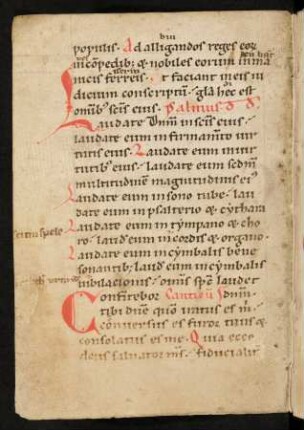 populis. Ad alligandos reges eoꝝ
in cōpedib; & nobiles eorum in ma
nicis ferreis. Ut faciant in eis iu
dicium conscriptū. gl̄a hec est
omīb; sc̄is eius. Psalmus D D
Laudate dn̄m in sc̄is eius.
laudate eum in firmamēto uir
tutis eius. Laudate eum in uir
tutib; eius. laudate eum sedm̄
multitudinē magnitudinis ei9
Laudate eum in sono tube. lau
date eum in psalterio & cythara
Laudate eum in tȳmpano & cho
ro. laud eum in cordis & organo.
Laudate eum in cȳmbalis bene
sonantib; laud eum in cȳmbalis
iubilacionis. omīs spc̄ laudet
Confitebor Canticū dn̄m.
tibi dnē qm̄ iratus es m̄
conuersus es furor tuus &
consolatus es me. Quia ecce
deus saluator ms̄. fiducialit̄